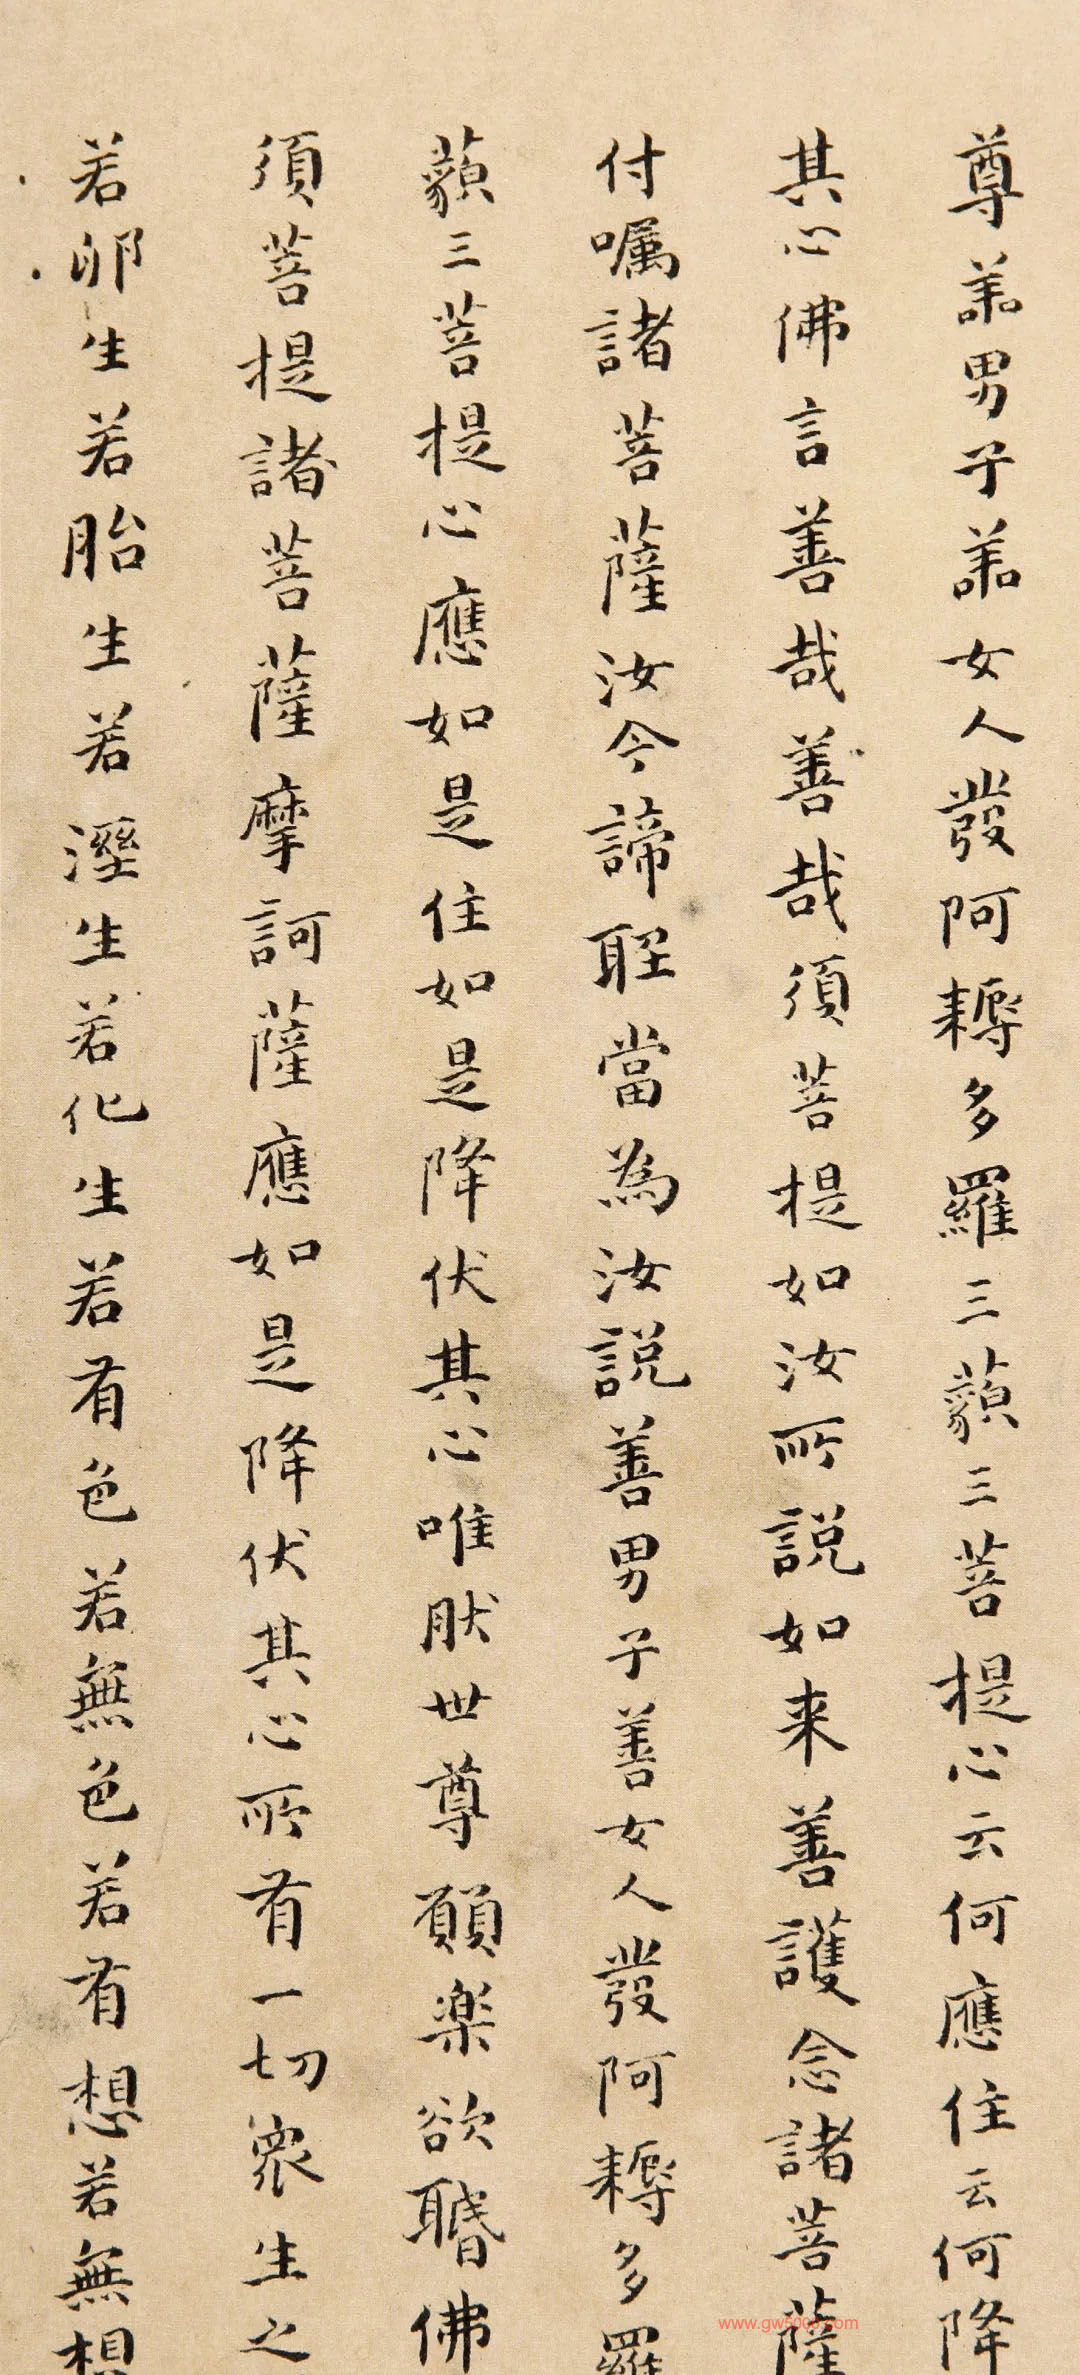 尊善男子善女人發阿耨多羅三藐三菩提心云何應住云何降
其心佛言善哉善哉須菩提如汝所説如来善護念諸菩薩
付嘱諸菩薩汝今諦聽當為汝説善男子善女人發阿耨多羅
藐三菩提心應如是住如是降伏其心唯然世尊願楽欲聞佛
須菩提諸菩薩摩訶薩應如是降伏其心所有一切衆生之
若卵生若胎生若溼生若化生若有色若無色若有想若無想
www.gw5000.com